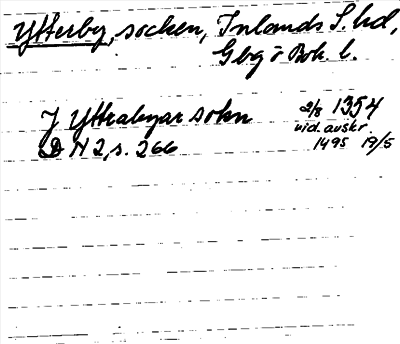 Ytterby, socken, Inlands S. hd,
Gbg o Boh. l.
J Yttrabyar sokn 2/8 1354
DN 2, s. 266 vid. avskr.
1495 19/5